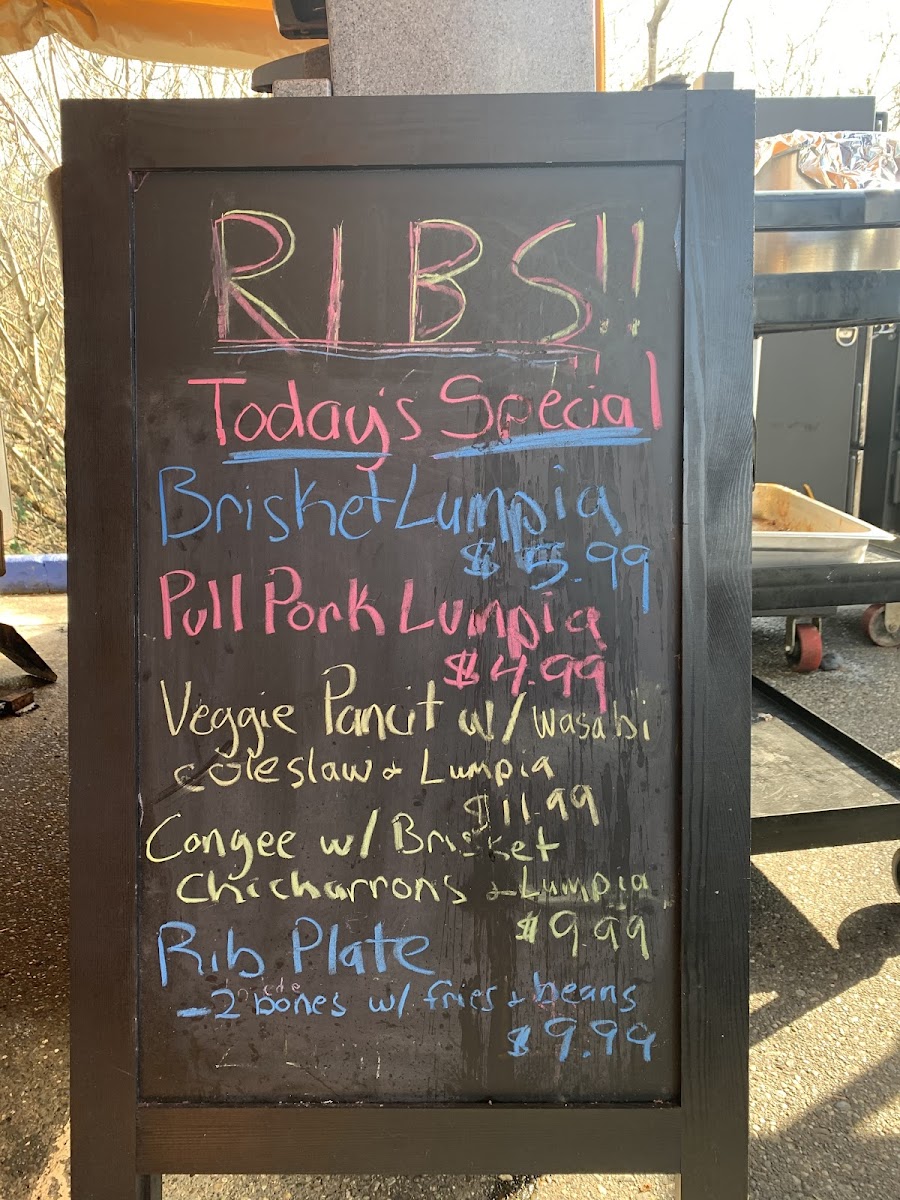 RIBS!!
Today's Special
Brisket Lumpia
$5.99
Pull Pork Lumpia
$4.99
Veggie Pancit w/ wasabi
coleslaw & Lumpia
$11.99
Congee w/ Brisket
Chicharrons & Lumpia
$9.99
Rib Plate
-2 bones w/ fries & beans
$9.99